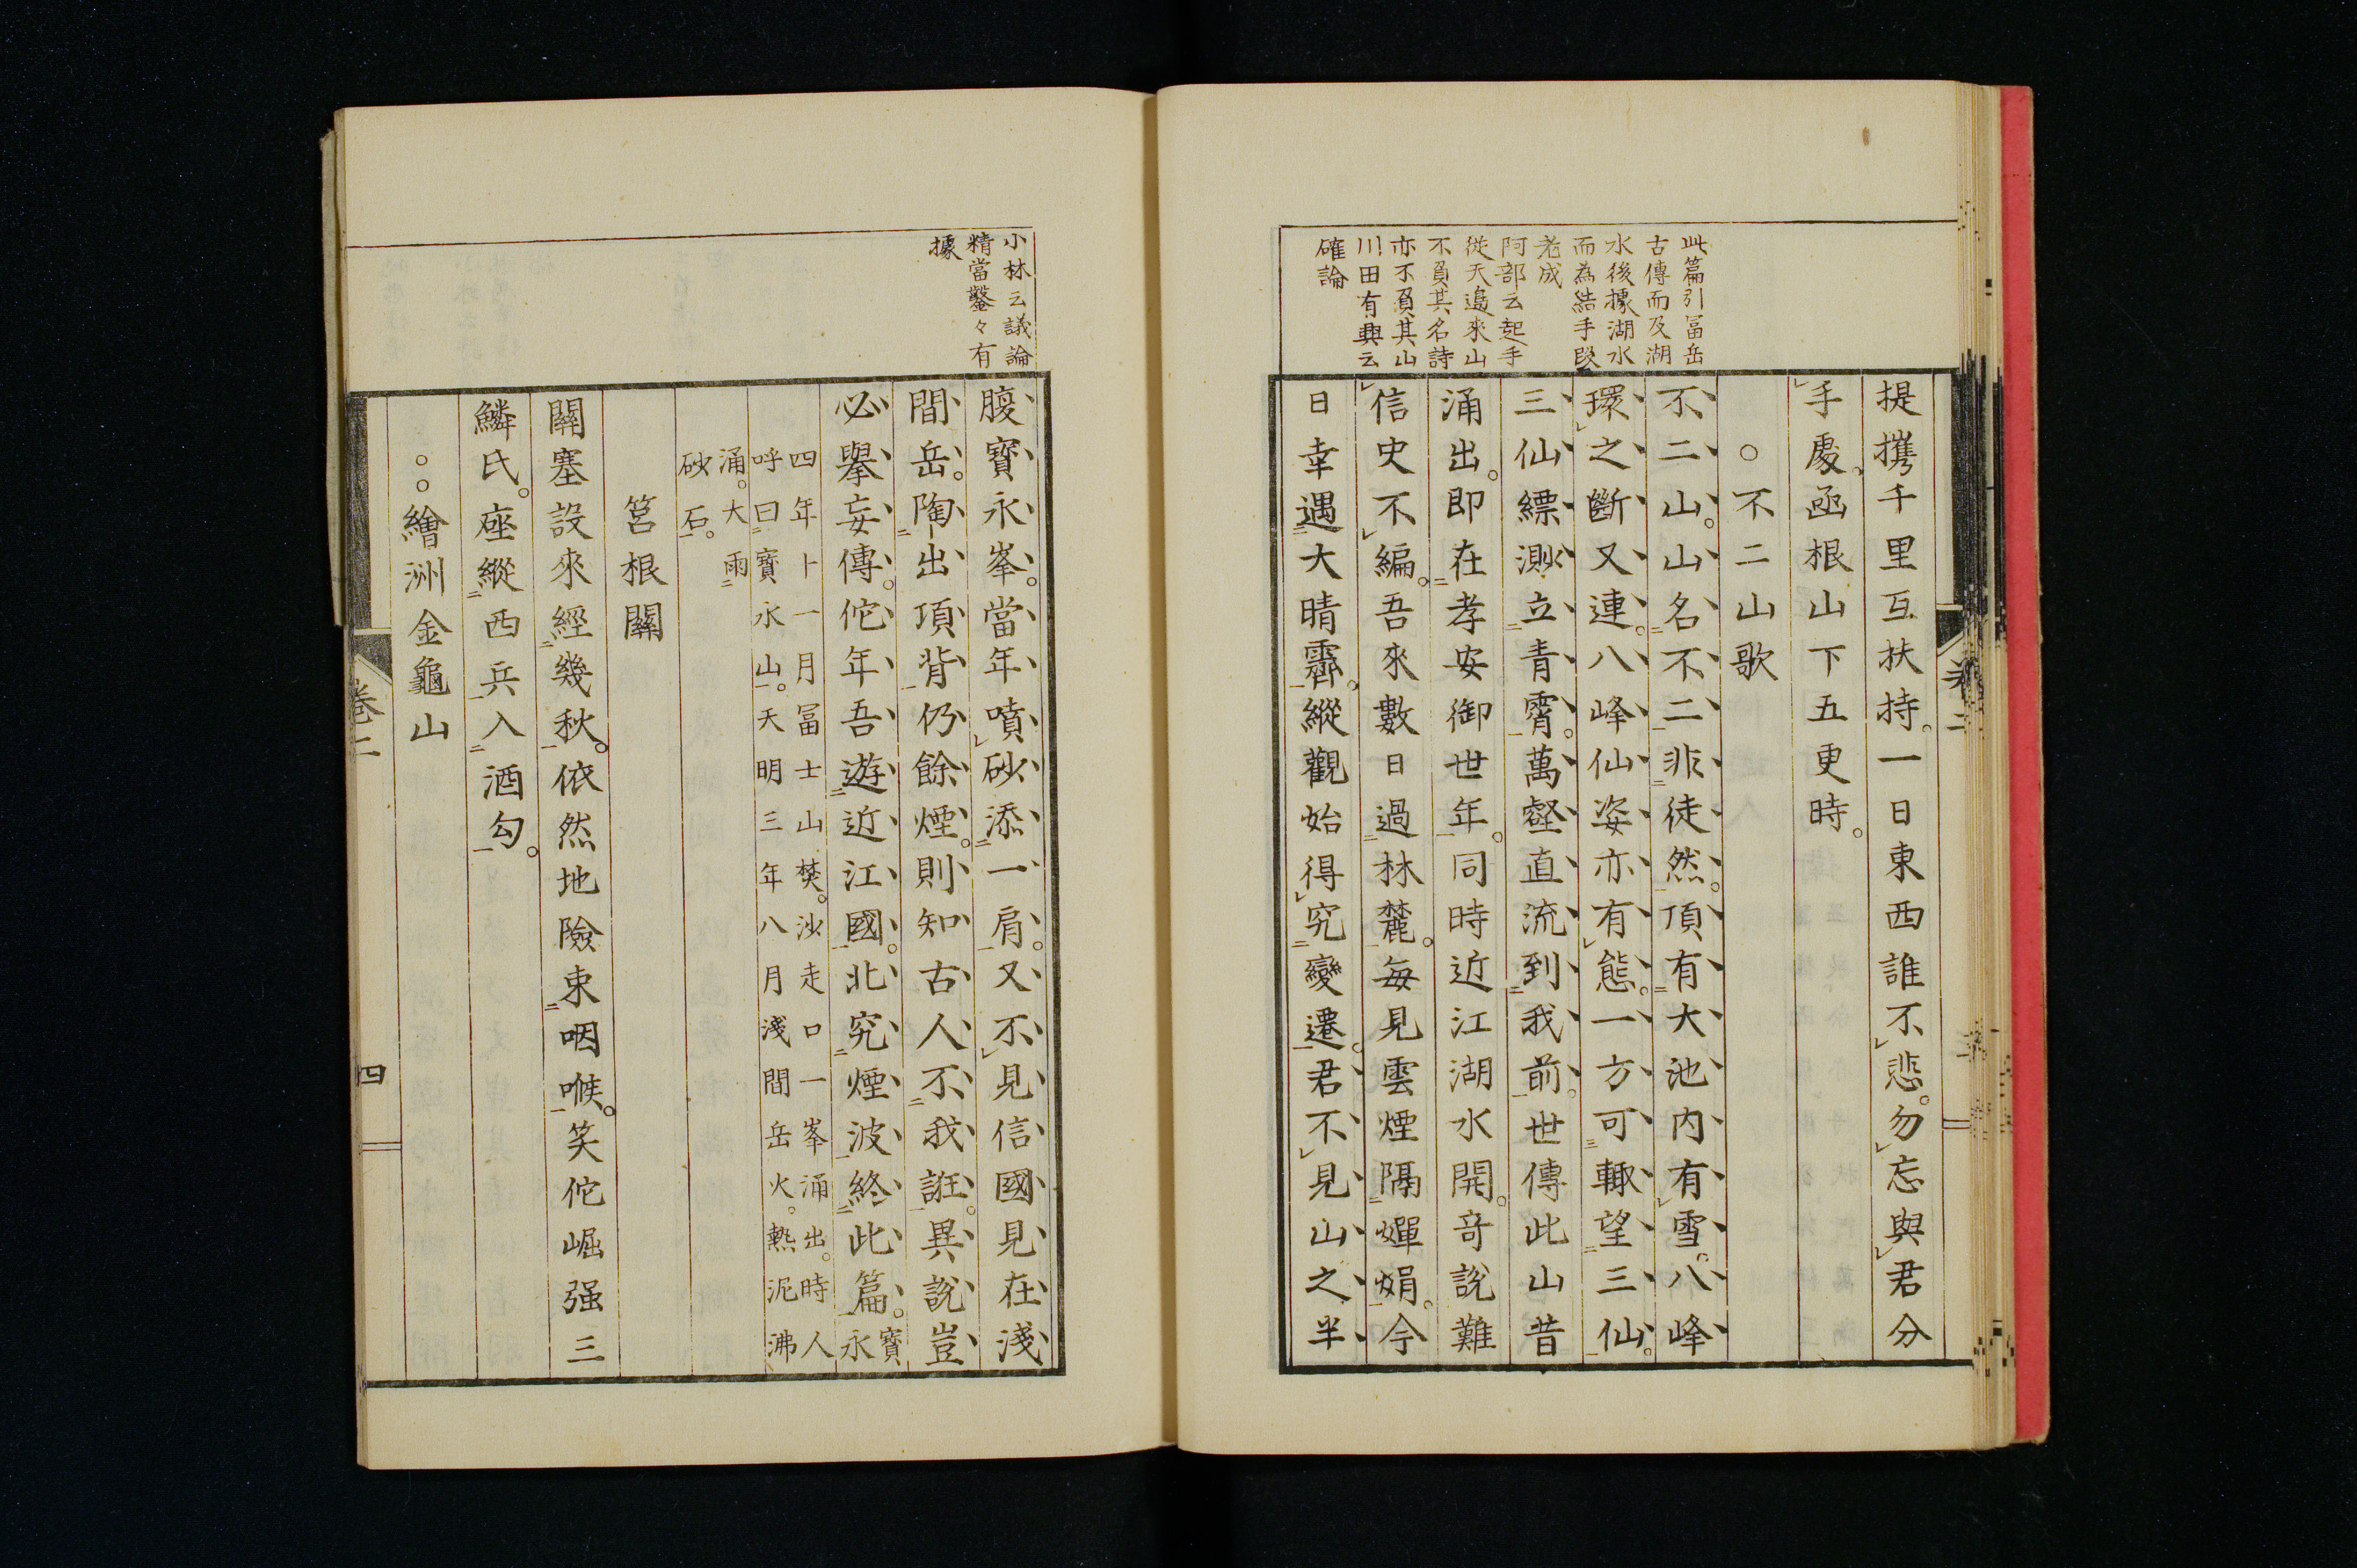 此篇引冨岳
古傳而及湖
水後據湖水
而為結手段
老成
阿部云起手
從天邉來山
不負其名詩
亦不負其山
川田有典云
確論
提攜千里互扶持。一日東西誰不悲。勿忘與君分
手處。函根山下五更時。
○不二山歌
不二山。山名不二非徒然。頂有大池内有雪。八峰
環之斷又連。八峰仙姿亦有態。一方可輙望三仙。
三仙縹渺立青霄。萬壑直流到我前。世傳此山昔
涌出。即在孝安御世年。同時近江湖水開。竒說難
信史不編。吾來數日過林麓。每見雲煙隔嬋娟。今
日幸遇大晴霽。縱觀始得究變遷。君不見山之半
小林云議論
精當鑿々有
據
腹寶永峯。當年噴砂添一肩。又不見信國見在淺
間岳。陶出項背仍餘煙。則知古人不我誑。異說豈
必擧妄傳。佗年吾遊近江國。北究煙波終此篇。寶永
四年卜一月冨士山焚。沙走口一峯涌出。時人
呼曰寶永山。天明三年八月淺間岳火。熱泥沸
涌。大雨
砂石。
筥根關
關塞設來經幾秋。依然地險束咽喉。笑佗崛强三
鱗氏。座縱西兵入酒匂。
○○繪洲金龜山
卷二
四